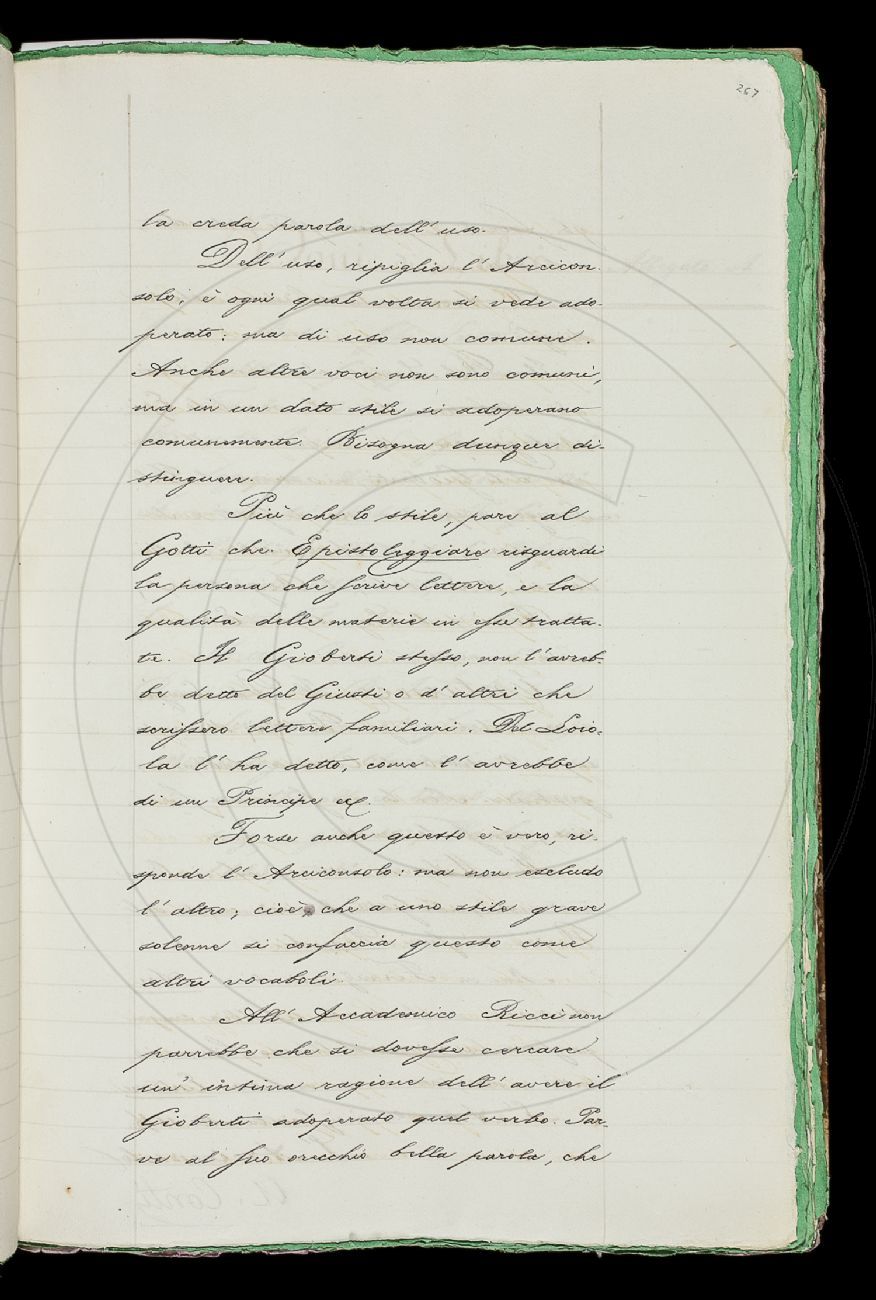 267
la creda parola dell'uso.
Dell'uso, ripiglia l'Arcicon-
solo; è ogni qual volta si vede ado-
perato: ma di uso non comune.
Anche altre voci non sono comuni,
ma in un dato stile si adoperano
comunemente. Bisogna dunque di-
stinguere.
Più che lo stile, pare al
Gotti che Epistoleggiare risguardi
la persona che scrive lettere, e la
qualità delle materie in esse tratta-
te. Il Gioberti stesso, non l'avreb-
be detto del Giusti o d'altri che
scrissero lettere familiari. Del Loio-
la l'ha detto, come l'avrebbe
di un Principe ec.
Forse anche questo è vero, ri-
sponde l'Arciconsolo: ma non escludo
l'altro; cioè che a uno stile grave
solenne si confaccia questo come
altri vocaboli.
All'Accademico Ricci non
parrebbe che si dovesse cercare
un' intima ragione dell'avere il
Gioberti adoperato quel verbo. Par-
ve al suo orecchio bella parola, che